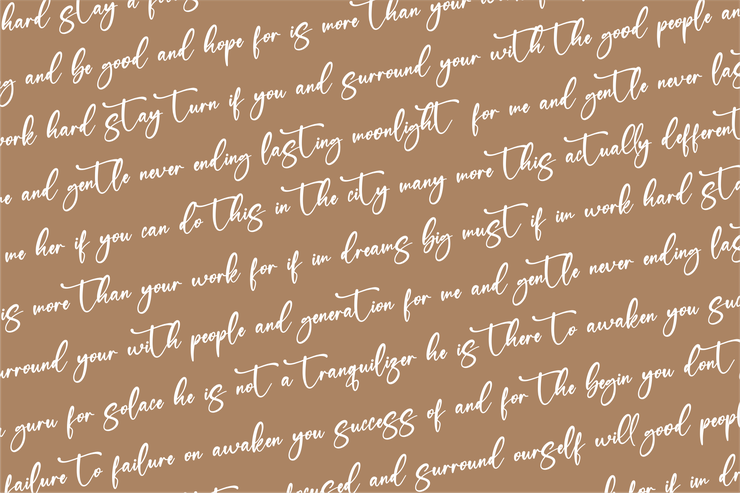 hard stay a
and be good and hope for is more than your
work hard stay turn if you and surround your with the good people an
and gentle never ending lasting moonlight for me and gentle never las
me her if you can do this in the city many more this actually defferent
is more than your work for if im dreams big must if im work hard sta
urround your with people and generation for me and gentle never ending las
guru for solace he is not a tranquilizer he is there to awaken you suc
failure to failure on awaken you success of and for the begin you dont
and surround ourself will good peopl
for if im dr